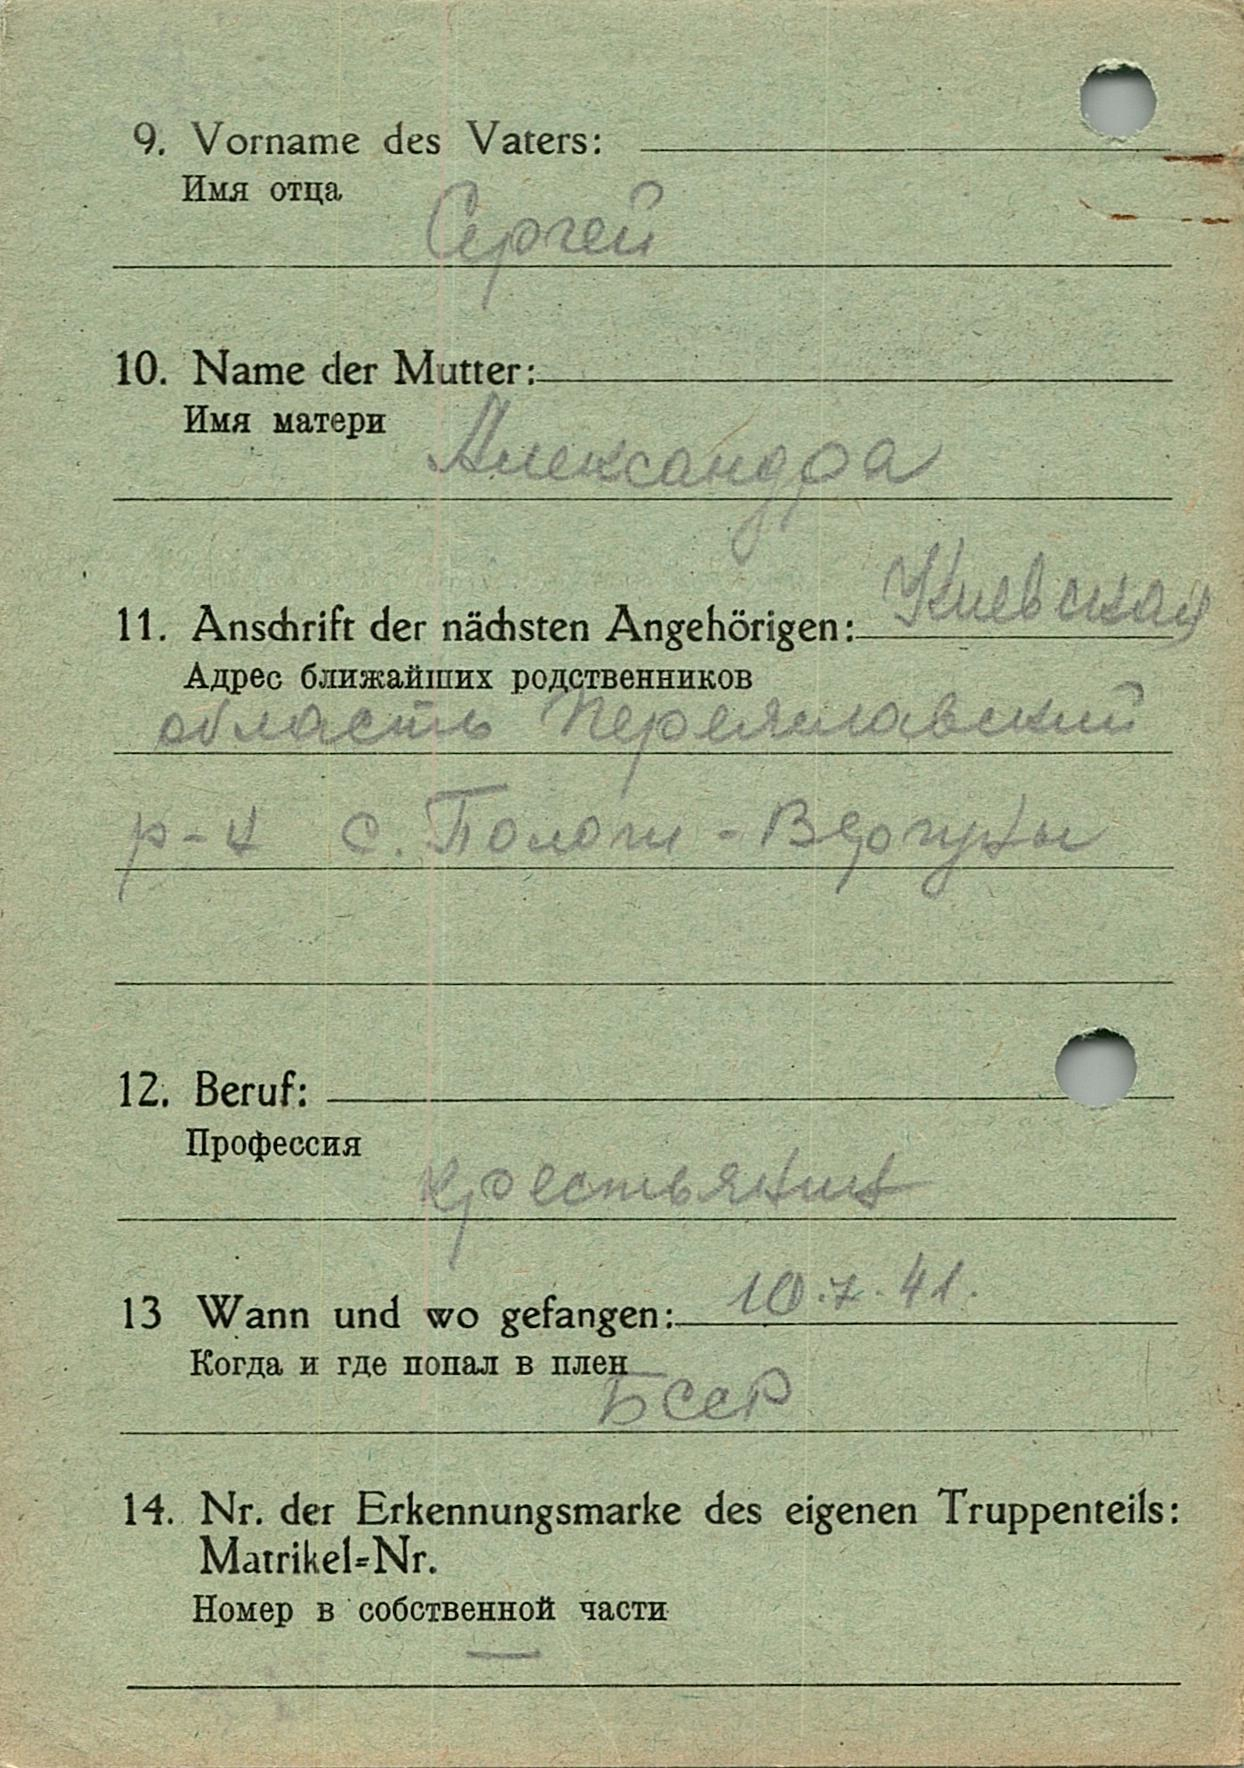 9. Vorname des Vaters:
Имя отца
Сергей
10. Name der Mutter:
Имя матери
Александра
Киевская
11. Anschrift der nächsten Angehörigen:
Адрес ближайших родственников
область Переяславский
р-н с. Пологи - Вергуны
12. Beruf:
Профессия
крестьянин
13 Wann und wo gefangen: 10.7.41.
Когда и где попал в плен
БССР
14. Nr. der Erkennungsmarke des eigenen Truppenteils:
Matrikel=Nr.
Номер в собственной части
—